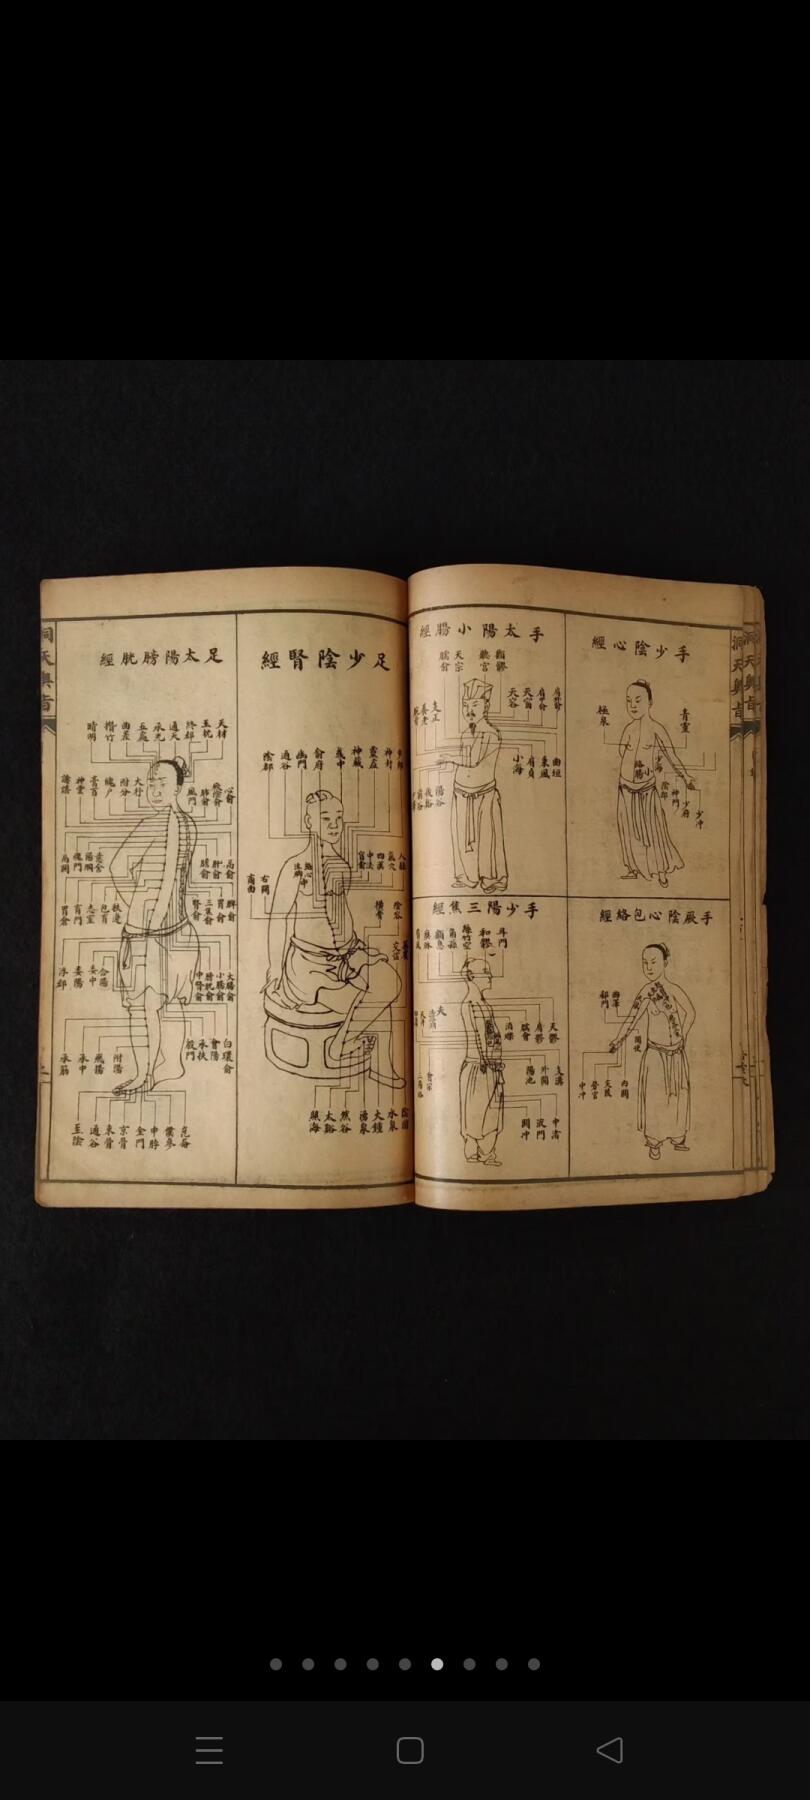 洞天奧旨
手少陰心經
極泉
青靈
少海
陰郄
神門
少府
少冲
手厥陰心包絡經
曲澤
郄門
間使
內關
大陵
勞宮
中冲
手太陽小腸經
顴髎
聽宮
天宗
臑俞
肩外俞
肩中俞
天窗
天容
支正
養老
曲垣
秉風
肩貞
小海
陽谷
後谿
手少陽三焦經
耳門
和髎
絲竹空
角孫
顱息
天髎
肩髎
臑會
消濼
支溝
外關
陽池
中渚
液門
關冲
會宗
足少陰腎經
步郎
神封
靈墟
神藏
彧中
俞府
幽門
通谷
陰都
氣穴
四滿
中注
肓俞
石關
商曲
橫骨
陰谷
交信
水泉
大鐘
湧泉
然谷
太谿
照海
足太陽膀胱經
天柱
玉枕
絡郄
通天
承光
五處
曲差
攢竹
睛明
心俞
厥陰俞
肺俞
風門
大杼
附分
魄户
膏肓
神堂
譩譆
膈俞
肝俞
膽俞
脾俞
胃俞
三焦俞
腎俞
魂門
陽綱
意舍
胃倉
肓門
志室
胞肓
秩邊
大腸俞
小腸俞
膀胱俞
中膂俞
白環俞
會陽
承扶
殷門
浮郄
委陽
委中
合陽
承筋
承山
飛揚
附陽
崑崙
僕參
申脈
金門
京骨
束骨
通谷
至陰
洞天奧旨